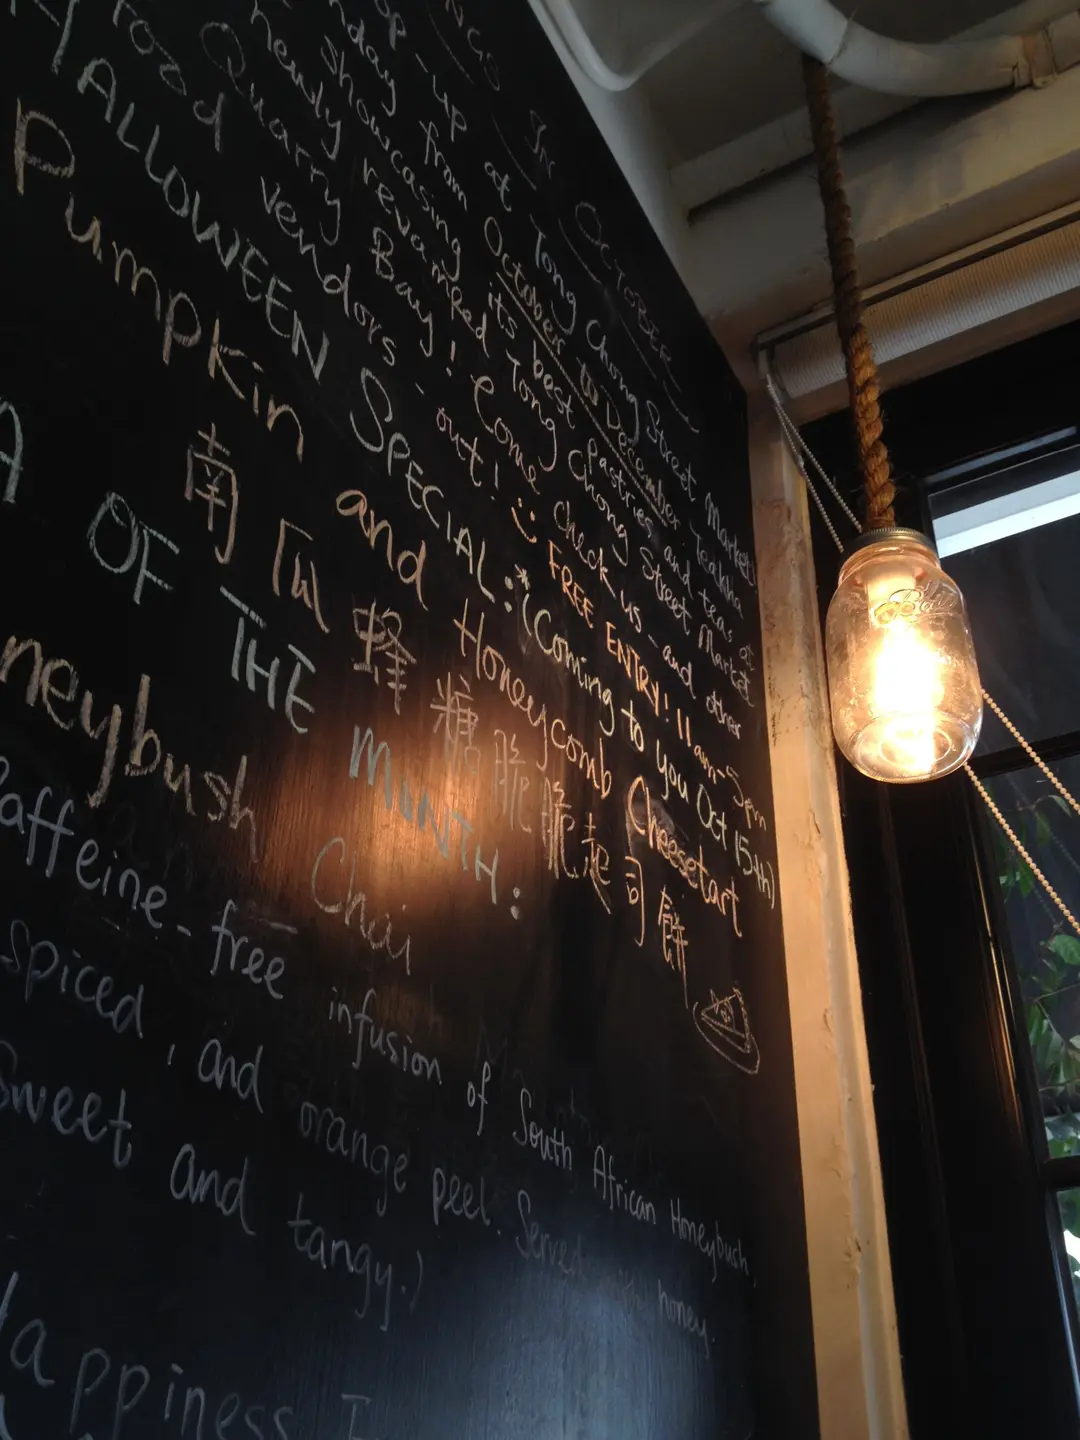 NGS IN OCTOBER
op-up at Tong Chong Street Market
nday from October to December. Teakha
showcasing its best pastries and teas at
newly revamped Tong Chong Street Market
Quarry Bay! Come check us - and other
food vendors - out! :) FREE ENTRY! 11am-5pm
HALLOWEEN SPECIAL: *(Coming to you Oct 15th)
Pumpkin and Honeycomb Cheesetart
南瓜蜂糖脆脆起司餅
A OF THE MONTH:
neybush Chai
caffeine-free infusion of South African Honeybush,
spiced, and orange peel. Served with honey.
Sweet and tangy.)
Happiness I